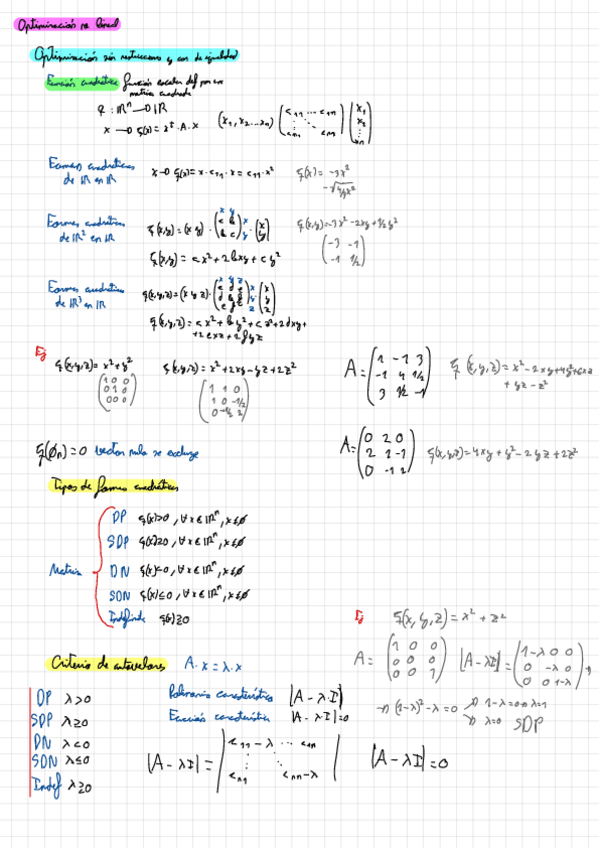 Optimización no lineal
Optimización sin restricciones y con de igualdad
Función cuadrática función escalar def por una
matriz cuadrada
q : ℝⁿ → ℝ
x → q(x) = xᵗ · A · x (x₁, x₂ ... xₙ) (a₁₁ ... a₁ₙ ... aₙ₁ ... aₙₙ) (x₁ x₂ ... xₙ)
Formas cuadráticas de ℝ en ℝ
x → q(x) = x · a₁₁ · x = a₁₁ · x²
q(x) = -3x²
Formas cuadráticas de ℝ² en ℝ
q(x,y) = (x y) · (a b b c) · (x y)
q(x,y) = ax² + 2bxy + cy²
q(x,y) = -3x² - 2xy + 1/2 y²
(-3 -1
-1 1/2)
Formas cuadráticas de ℝ³ en ℝ
q(x,y,z) = (x y z) ·
q(x,y,z) = ax² + by² + cz² + 2dxy +
+ 2exz + 2fyz
Ej
q(x,y,z) = x² + y²
(1 0 0
0 1 0
0 0 0)
q(x,y,z) = x² + 2xy - yz + 2z²
(1 1 0
1 0 -1/2
0 -1/2 2)
A = (1 -1 3
-1 4 1/2
3 1/2 -1)
q(x,y,z) = x² - 2xy + 4y² + 6xz
+ yz - z²
q(0ₙ) = 0 vector nulo se excluye
A = (0 2 0
2 1 -1
0 -1 2)
q(x,y,z) = 4xy + y² - 2yz + 2z²
Tipos de formas cuadráticas
Matriz
DP q(x) > 0, ∀ x ∈ ℝⁿ, x ≠ 0
SDP q(x) ≥ 0, ∀ x ∈ ℝⁿ, x ≠ 0
DN q(x) < 0, ∀ x ∈ ℝⁿ, x ≠ 0
SDN q(x) ≤ 0, ∀ x ∈ ℝⁿ, x ≠ 0
Indefinida q(x) ≷ 0
Ej q(x, y, z) = x² + z²
A = (1 0 0
0 0 0
0 0 1)
|A - λI| = (1-λ 0 0
0 -λ 0
0 0 1-λ) →
→ (1-λ)² · -λ = 0 → 1-λ = 0 → λ = 1
→ λ = 0 SDP
Criterio de autovalores A · x = λ · x
DP λ > 0
SDP λ ≥ 0
DN λ < 0
SDN λ ≤ 0
Indef λ ≷ 0
Polinomio característico |A - λ·I|
Ecuación característica |A - λ·I| = 0
|A - λI| = |a₁₁ - λ ... a₁ₙ
aₙ₁ ... aₙₙ - λ|
|A - λI| = 0